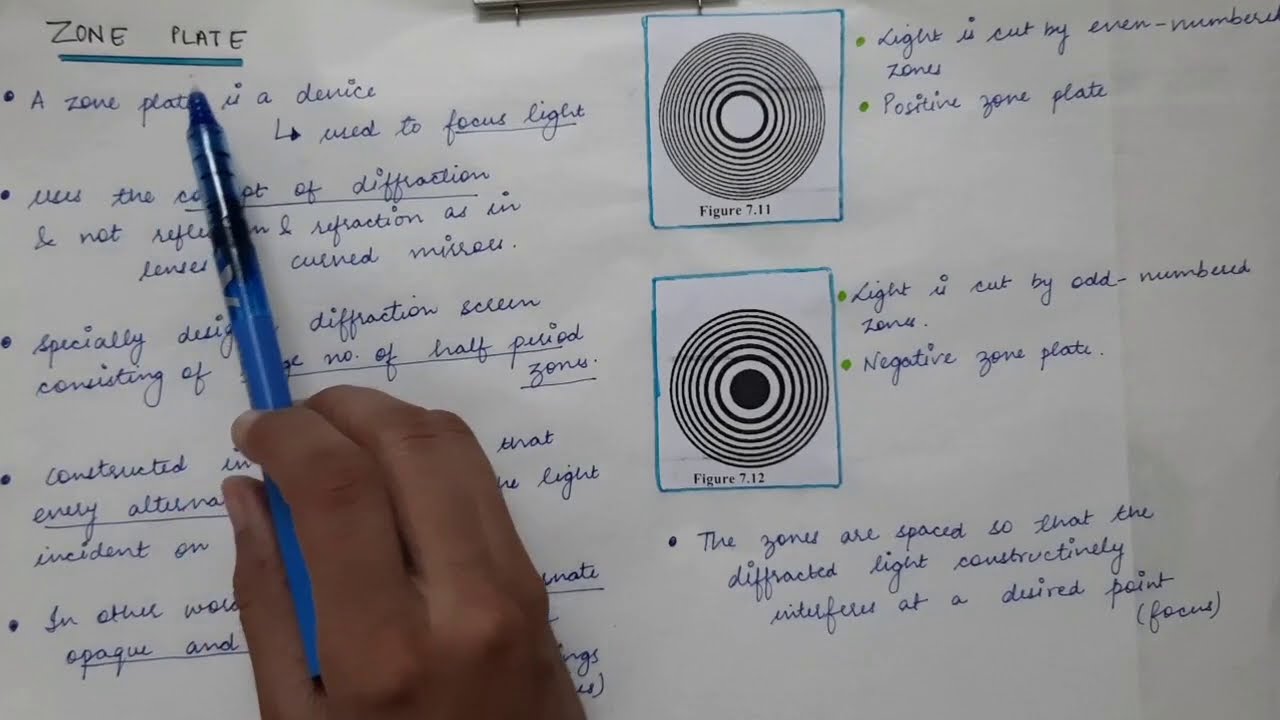 ZONE PLATE
• A zone plate is a device
↳ used to focus light
• uses the concept of diffraction
& not reflection & refraction as in
lenses curved mirrors.
• Specially diffraction screen
consisting of no. of half period
zones.
• constructed in that
every light
incident on
• In other
opaque and
Figure 7.11
• Light is cut by even-numbered
zones
• Positive zone plate
Figure 7.12
• Light is cut by odd-numbered
zones.
• Negative zone plate.
• The zones are spaced so that the
diffracted light constructively
interferes at a desired point
(focus)